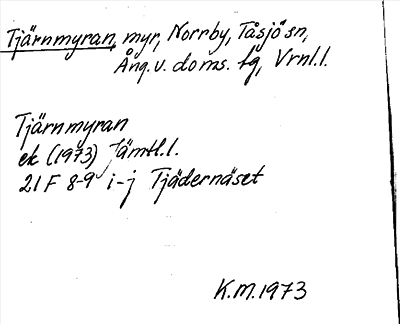 Tjärnmyran, myr, Norrby, Tåsjö sn,
Ång. v. doms. fg, Vrnl.l.
Tjärnmyran
ek (1973) Jämtl.l.
21F 8-9 i-j Tjädernäset
K.M.1973